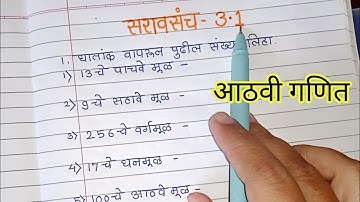 सरावसंच - 3.1
1. घातांक वापरून पुढील संख्या लिहा.
1) 13 चे पाचवे मूळ -
आठवी गणित
2) 9 चे सहावे मूळ -
3) 256 चे वर्गमूळ -
4) 17 चे घनमूळ -
5) 100 चे आठवे मूळ -